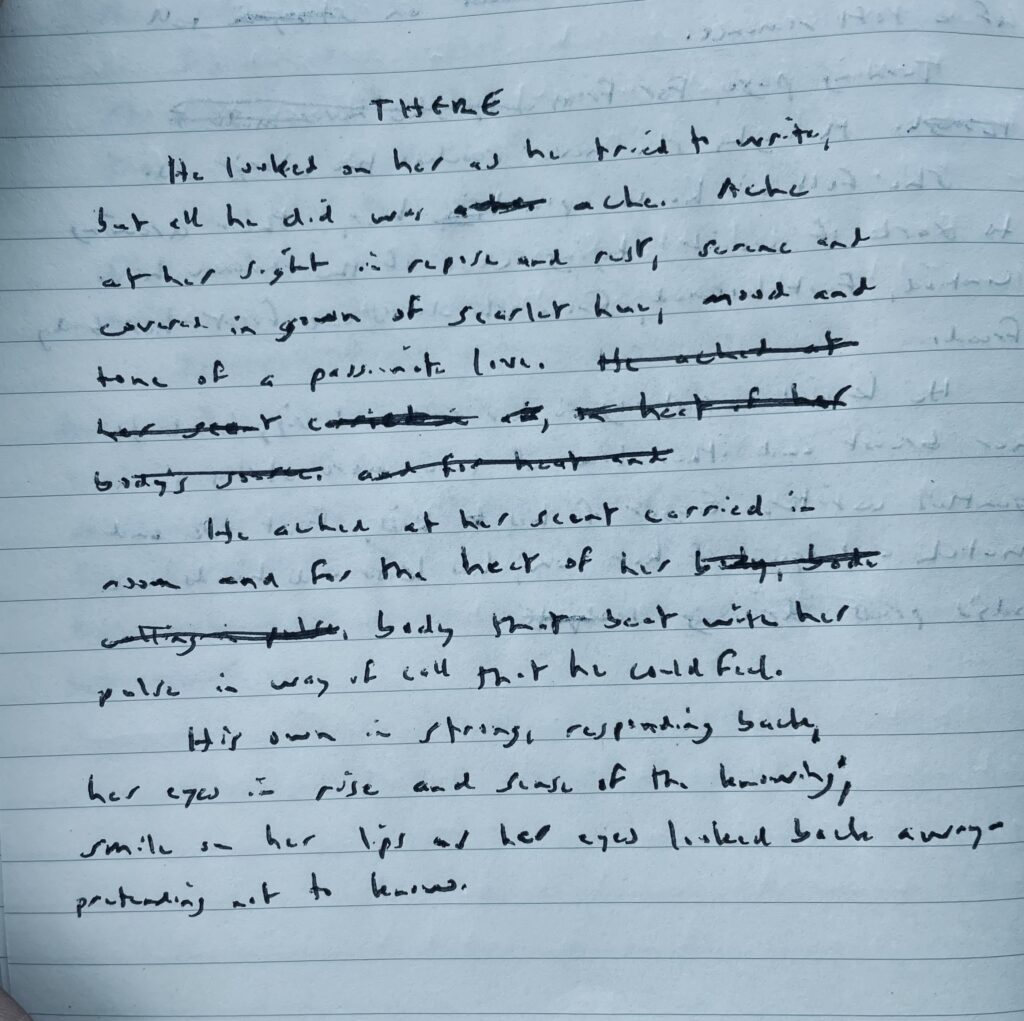 THERE
He looked on her as he tried to write,
but all he did was ache. Ache
at her sight in repose and rest, serene and
covered in gown of scarlet hue, mood and
tone of a passionate love. He ached at
her scent carried in, heat of her
body's and for heat and
He ached at her scent carried in
room and for the heat of her body, body
calling in pulse, body that beat with her
pulse in way of call that he could feel.
His own in strong, responding back,
her eyes in rise and sense of the knowing;
smile on her lips as her eyes looked back away-
pretending not to know.